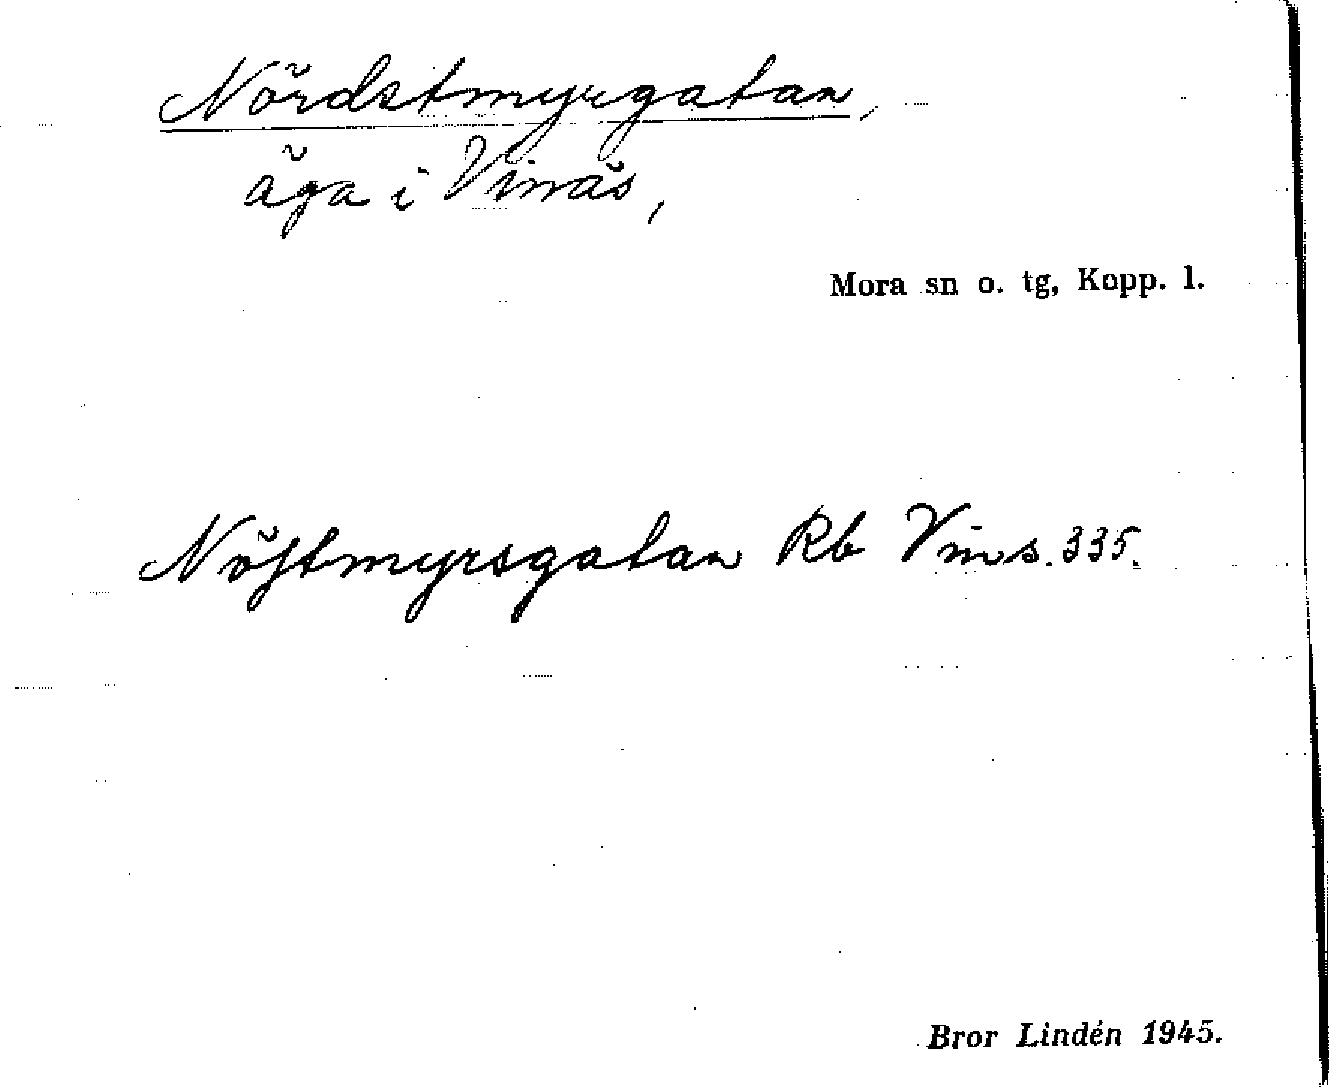 Nördstmyrgatan,
äga i Vinäs,
Mora sn o. tg, Kopp. l.
Nöstmyrsgatan Rb Vins. 335.
Bror Lindén 1945.